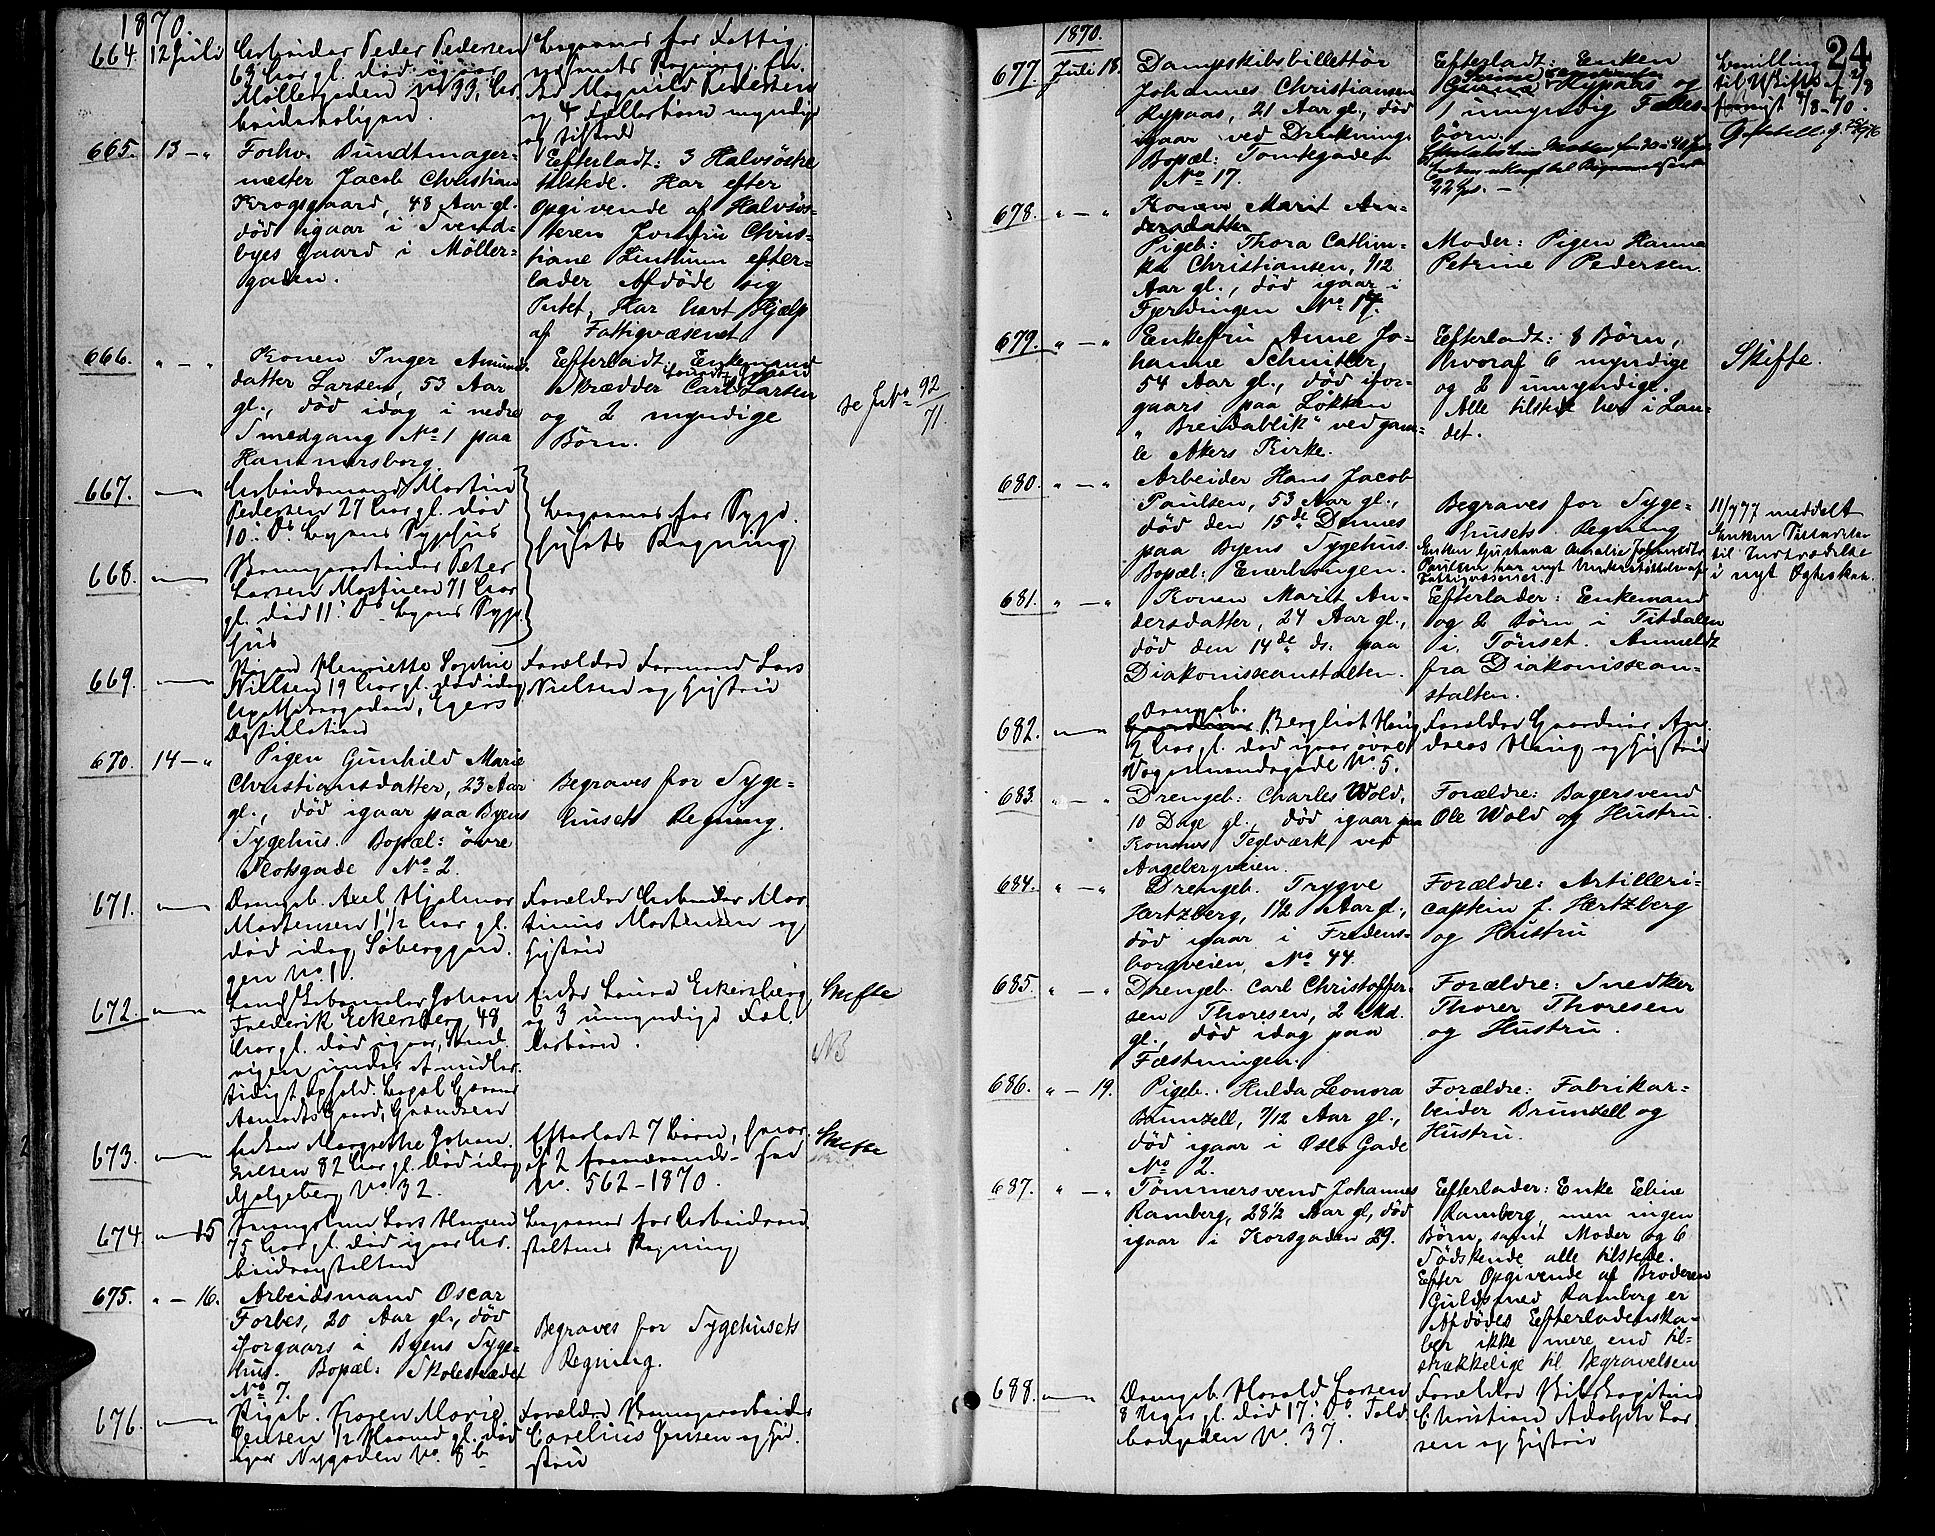 1870.
664. 12 Juli Arbeider Peder Pedersen
63 Aar gl. død igaar
Møllergaden No 93, Ar-
beiderboligen.
Begraves for Fattig-
væsenets Regning. En-
ke Magnild Pedersen
og 4 Fællesbørn myndige
og tilstede
665. 13 - " Forhv. Bundtmager-
mester Jacob Christian
Krogsgaard, 48 Aar gl.
død igaar i Svend-
byes Gaard i Møller-
gaden.
Efterladt: 3 Halvsøskende
tilstede. Har efter
Opgivende af Halvsøs-
teren Jomfru Chris-
tiane Linthum efter-
lader Afdøde sig
Intet, Har havt Hjælp
af Fattigvæsenet
666. " - " Konen Inger Amunds-
datter Larsen, 53 Aar
gl., død idag i nedre
Smedgang No 1 paa
Hammersborg.
Efterladt: Enkemand
Skrædder Carl Larsen
og 2 myndige
Børn.
se J.No 92/71.
667. — " Arbeidsmand Martin
Pedersen 27 Aar gl. død
10. Ds. Byens Sygehus
668. — " Brænderiarbeider Peter
Larsen Mostuen 71 Aar
gl. død 11. Ds. Byens Syge-
hus
Begraves for Syge-
husets Regning
669. — " Pigen Henriette Sophie
Nielsen 19 Aar gl. død idag
Apothekergaden, Egers
Destillation
Forældre Formand Lars
Nielsen og Hustru
670. 14 - " Pigen Gunhild Marie
Christiansdatter, 23 Aar
gl., død igaar paa Byens
Sygehus. Bopæl: øvre
Slotsgade No 2.
Begraves for Syge-
husets Regning.
671. — " Drengeb. Axel Hjalmar
Mortensen 1 1/2 Aar gl.
død idag Soberggan-
gen No 1.
Forældre Arbeider Mar-
tinius Mortensen og
Hustru
672. — " Landskabsmaler Johan
Frederik Eckersberg 48
Aar gl. død igaar, Sand-
vigen under et midler-
tidigt Ophold. Bopæl
Aamodts Gaard, Grændsen
Enke Laura Eckersberg
og 3 umyndige Fæl-
lesbørn.
Skifte
NB
673. — " Enken Margrethe Johan-
nesen 82 Aar gl. død idag
Hjelgeberg No 32.
Efterladt 7 Børn, hvor-
af 2 fraværende - se
No. 562-1870.
Skifte
674. — 15 Lars Hansen
75 Aar gl. død igaar Ar-
beidsanstalten
Begraves for Arbeidsan-
staltens Regning
675. " - 16. Arbeidsmand Oscar
Forbes, 20 Aar gl., død
iforgaars i Byens Syge-
hus. Bopæl: Skolestrædet
No 7.
Begraves for Sygehusets
Regning.
676. — " Pigeb. Karen Marie
Jensen 1/2 Maaned gl. død
igaar Nygaden No. 8 b
Forældre Brænderiarbeider
Carelius Jensen og Hu-
stru
24
1870.
677. Juli 18. Dampskibsbillettør
Johannes Christiansen
Rypaas, 21 Aar gl., død
igaar ved Drukning.
Bopæl: Tomtegaden
No 17.
Efterladt: Enken
Rypaas og
1 umyndig Fælles-
børn.
22 Sp. -
Bevilling
til Uskifte
678. " - " Konen Marit An-
dersdatter
Pigeb: Thora Cathin-
ka Christiansen, 7/12
Aar gl., død igaar i
Fjerdingen No 17.
Moder: Pigen Hanna
Petrine Pedersen.
679. " - " Enkefru Anne Jo-
hanne Schnitler
54 Aar gl., død ifor-
gaars paa Løkken
"Breidablik" ved gam-
le Akers Kirke.
Efterladt: 8 Børn,
hvoraf 6 myndige
og 2 umyndige.
Alle tilstede her i Lan-
det.
Skifte.
680. " - " Arbeider Hans Jacob
Paulsen, 53 Aar gl.,
død den 15de Dennes
paa Byens Sygehus.
Bopæl: Enerhougen.
Begraves for Syge-
husets Regning
Enken Gustava Amalie Johannesdtr
Paulsen har nydt Understøttelse af
Fattigvæsenet.
11/7 77 meddelt
Enken Tilladelse
til Indtrædelse
i nyt Ægteskab.
681. " - " Konen Marit An-
dersdatter, 24 Aar gl.,
død den 14de ds. paa
Diakonisseanstalten.
Efterlader: Enkemand
og 2 Børn i Titdalen
i Tønset. Anmeldt
fra Diakonissean-
stalten.
682. — " Pigeb. Bergliot Haug
2 Aar gl. død igaar øvre
Vognmandsgade No. 5.
Forældre Gaardeier An-
dreas Haug og Hustru
683. " - " Drengeb: Charles Wold,
10 Dage gl., død igaar paa
Konows Teglværk ved
Aagebergveien.
Forældre: Bagersvend
Ole Wold og Hustru.
684. " - " Drengeb. Trygve
Hertzberg, 1 1/2 Aar gl.,
død igaar i Fredens-
borgveien, No 44.
Forældre: Artilleri-
captein f. Hertzberg
og Hustru
685. " - " Drengeb. Carl Christoffer-
sen Thoresen, 2 Md.
gl., død idag paa
Fæstningen.
Forældre: Snedker
Thorer Thoresen
og Hustru.
686. " - 19. Pigeb. Hulda Leonora
Brunzell, 7/12 Aar gl.,
død igaar i Oslo Gade
No 2.
Forældre: Fabrikar-
beider Brunzell og
Hustru.
687. " - " Tømmersvend Johannes
Ramberg, 28 1/2 Aar gl, død
igaar i Korsgaden 29.
Efterlader: Enke Eline
Ramberg, men ingen
Børn, samt Moder og 6
Sødskende alle tilstede.
Efter Opgivende af Broderen
Guldsmed Ramberg er
Afdødes Efterladenska-
ber ikke mere end til-
strækkelige til Begravelsen
688. — " Drengeb. Harald Larsen
8 Uger gl. død 17. Ds. Told-
bodgaden No. 37.
Forældre
Christian Adolph Lar-
sen og Hustru